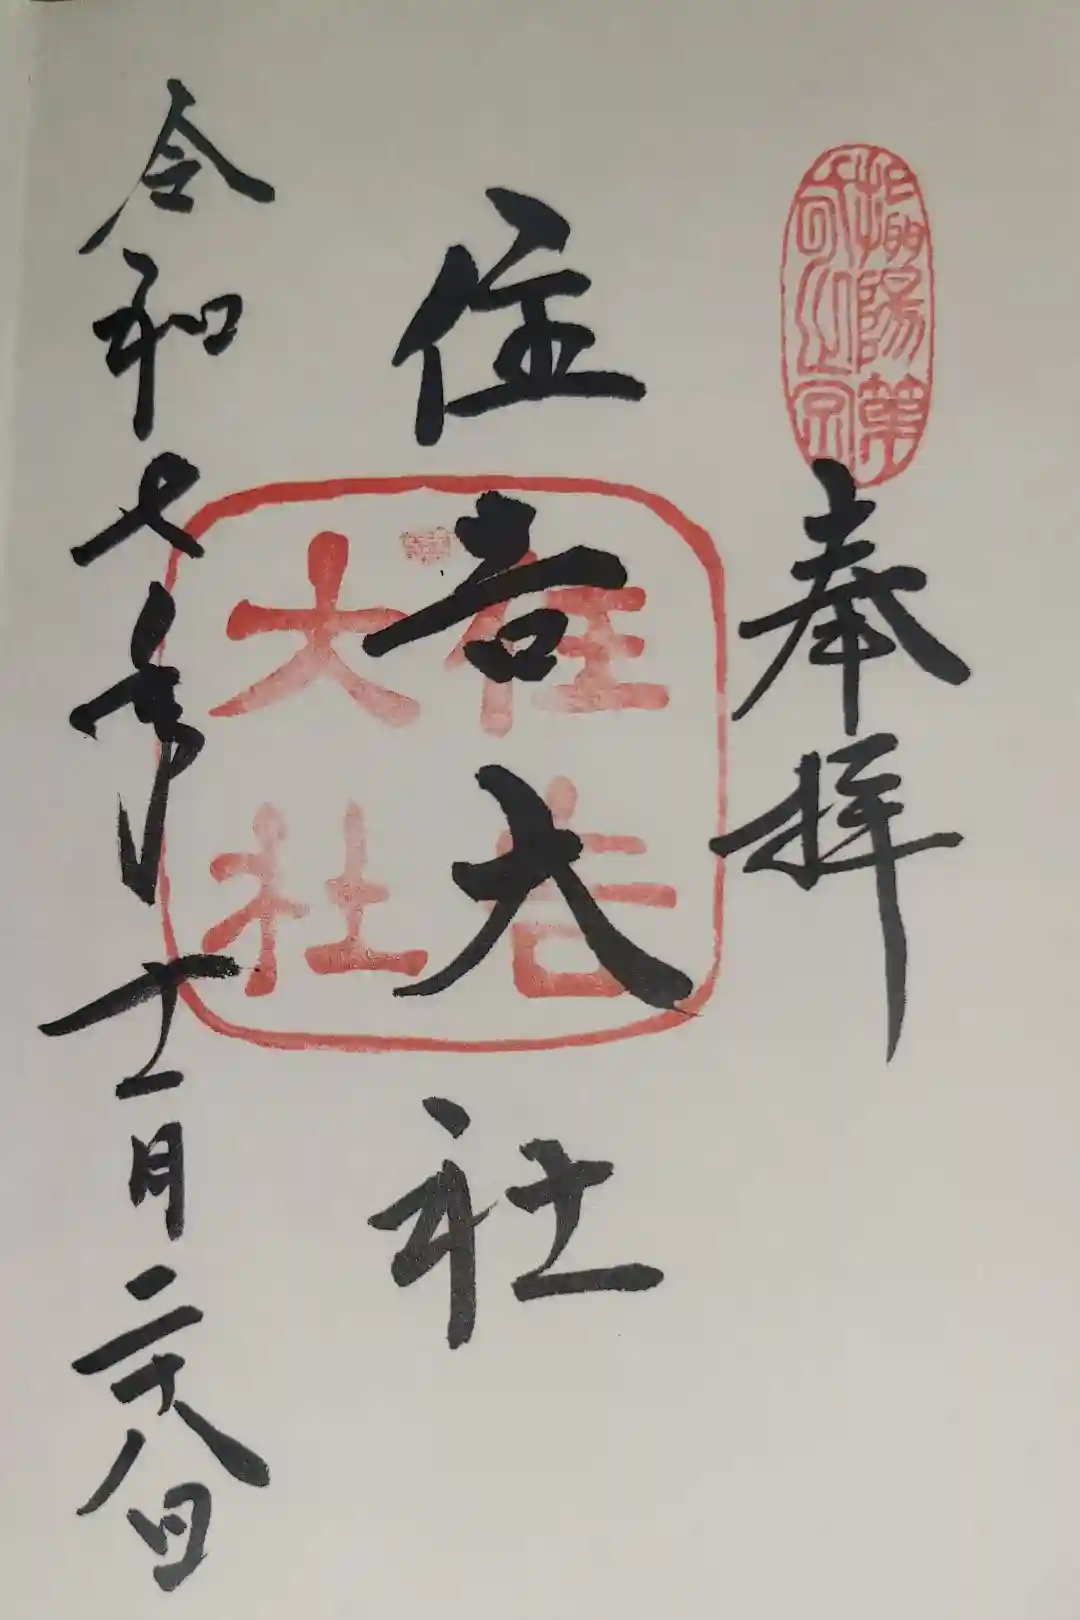 奉拝
住吉大社
住吉大社
令和七年十一月二十八日